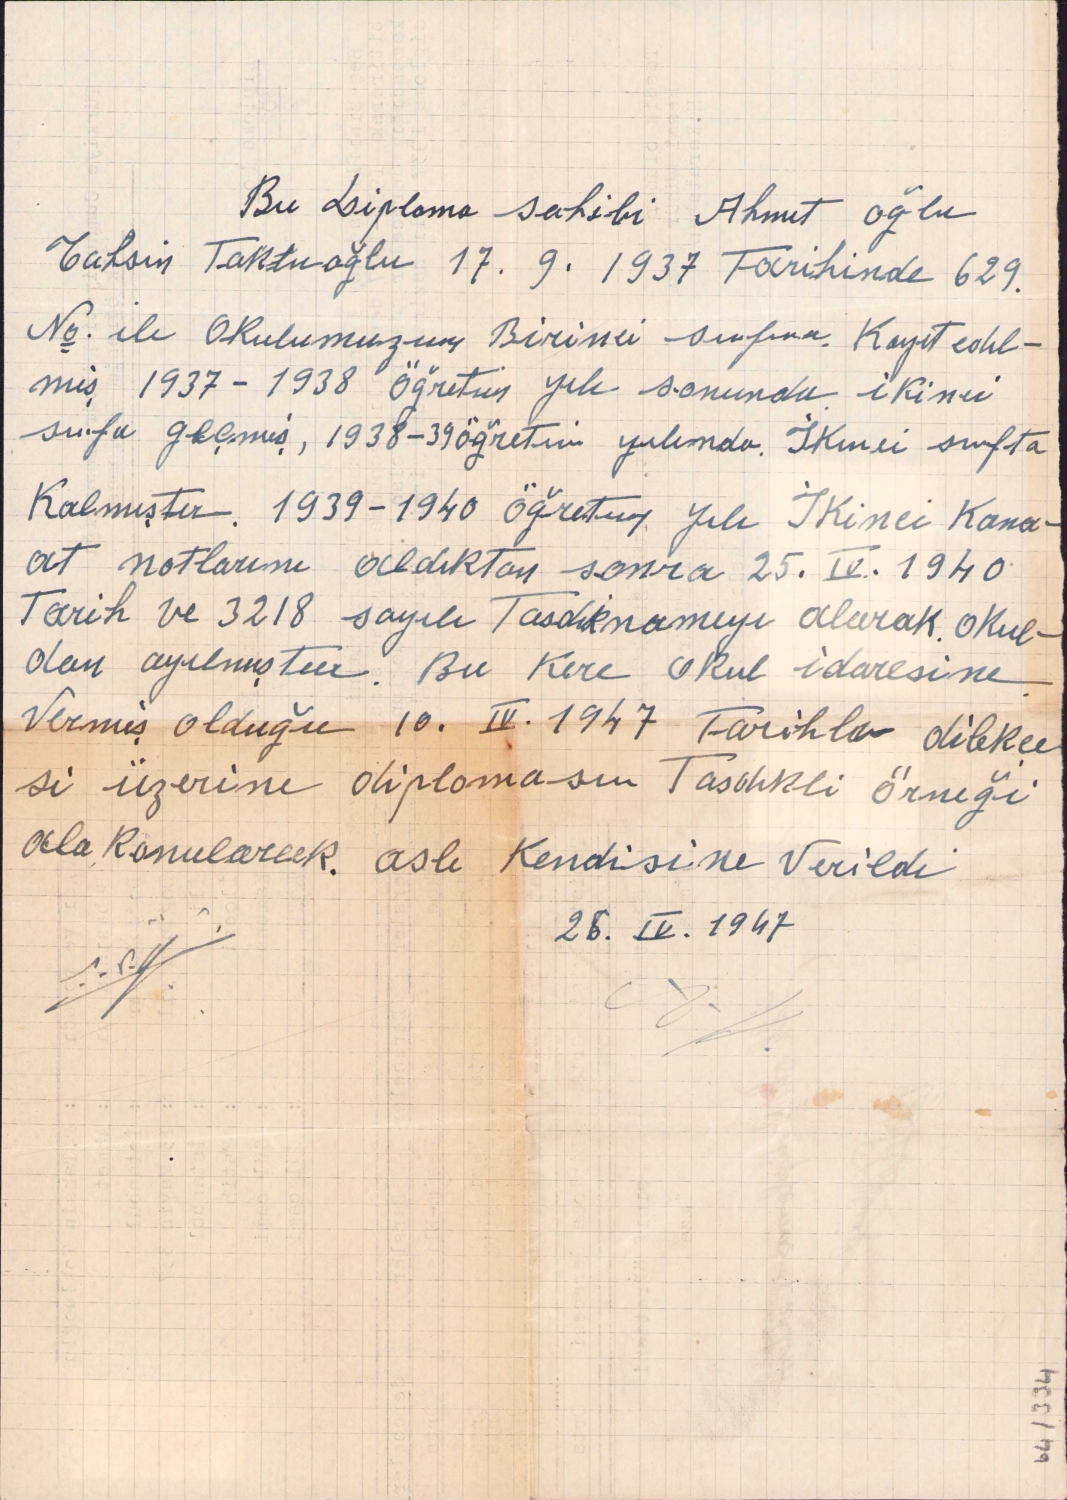 Bu Diploma sahibi Ahmet oğlu
Tahsin Taktuoğlu 17. 9. 1937 Tarihinde 629.
No. ile Okulumuzun Birinci sınıfına. Kayıt edil-
miş 1937 - 1938 öğretim yılı sonunda ikinci
sınıfa geçmiş, 1938-39 öğretim yılında. İkinci sınıfta
Kalmıştır. 1939-1940 öğretim yılı İkinci Kana-
at notlarını aldıktan sonra 25. IV. 1940
Tarih ve 3218 sayılı Tasdiknameyi alarak. Okul-
dan ayrılmıştır. Bu Kere Okul idaresine
Vermiş olduğu 10. IV. 1947 Tarihli dilekçe
si üzerine diplomasın Tasdikli örneği
ala konularak. aslı Kendisine Verildi
IV. 1947